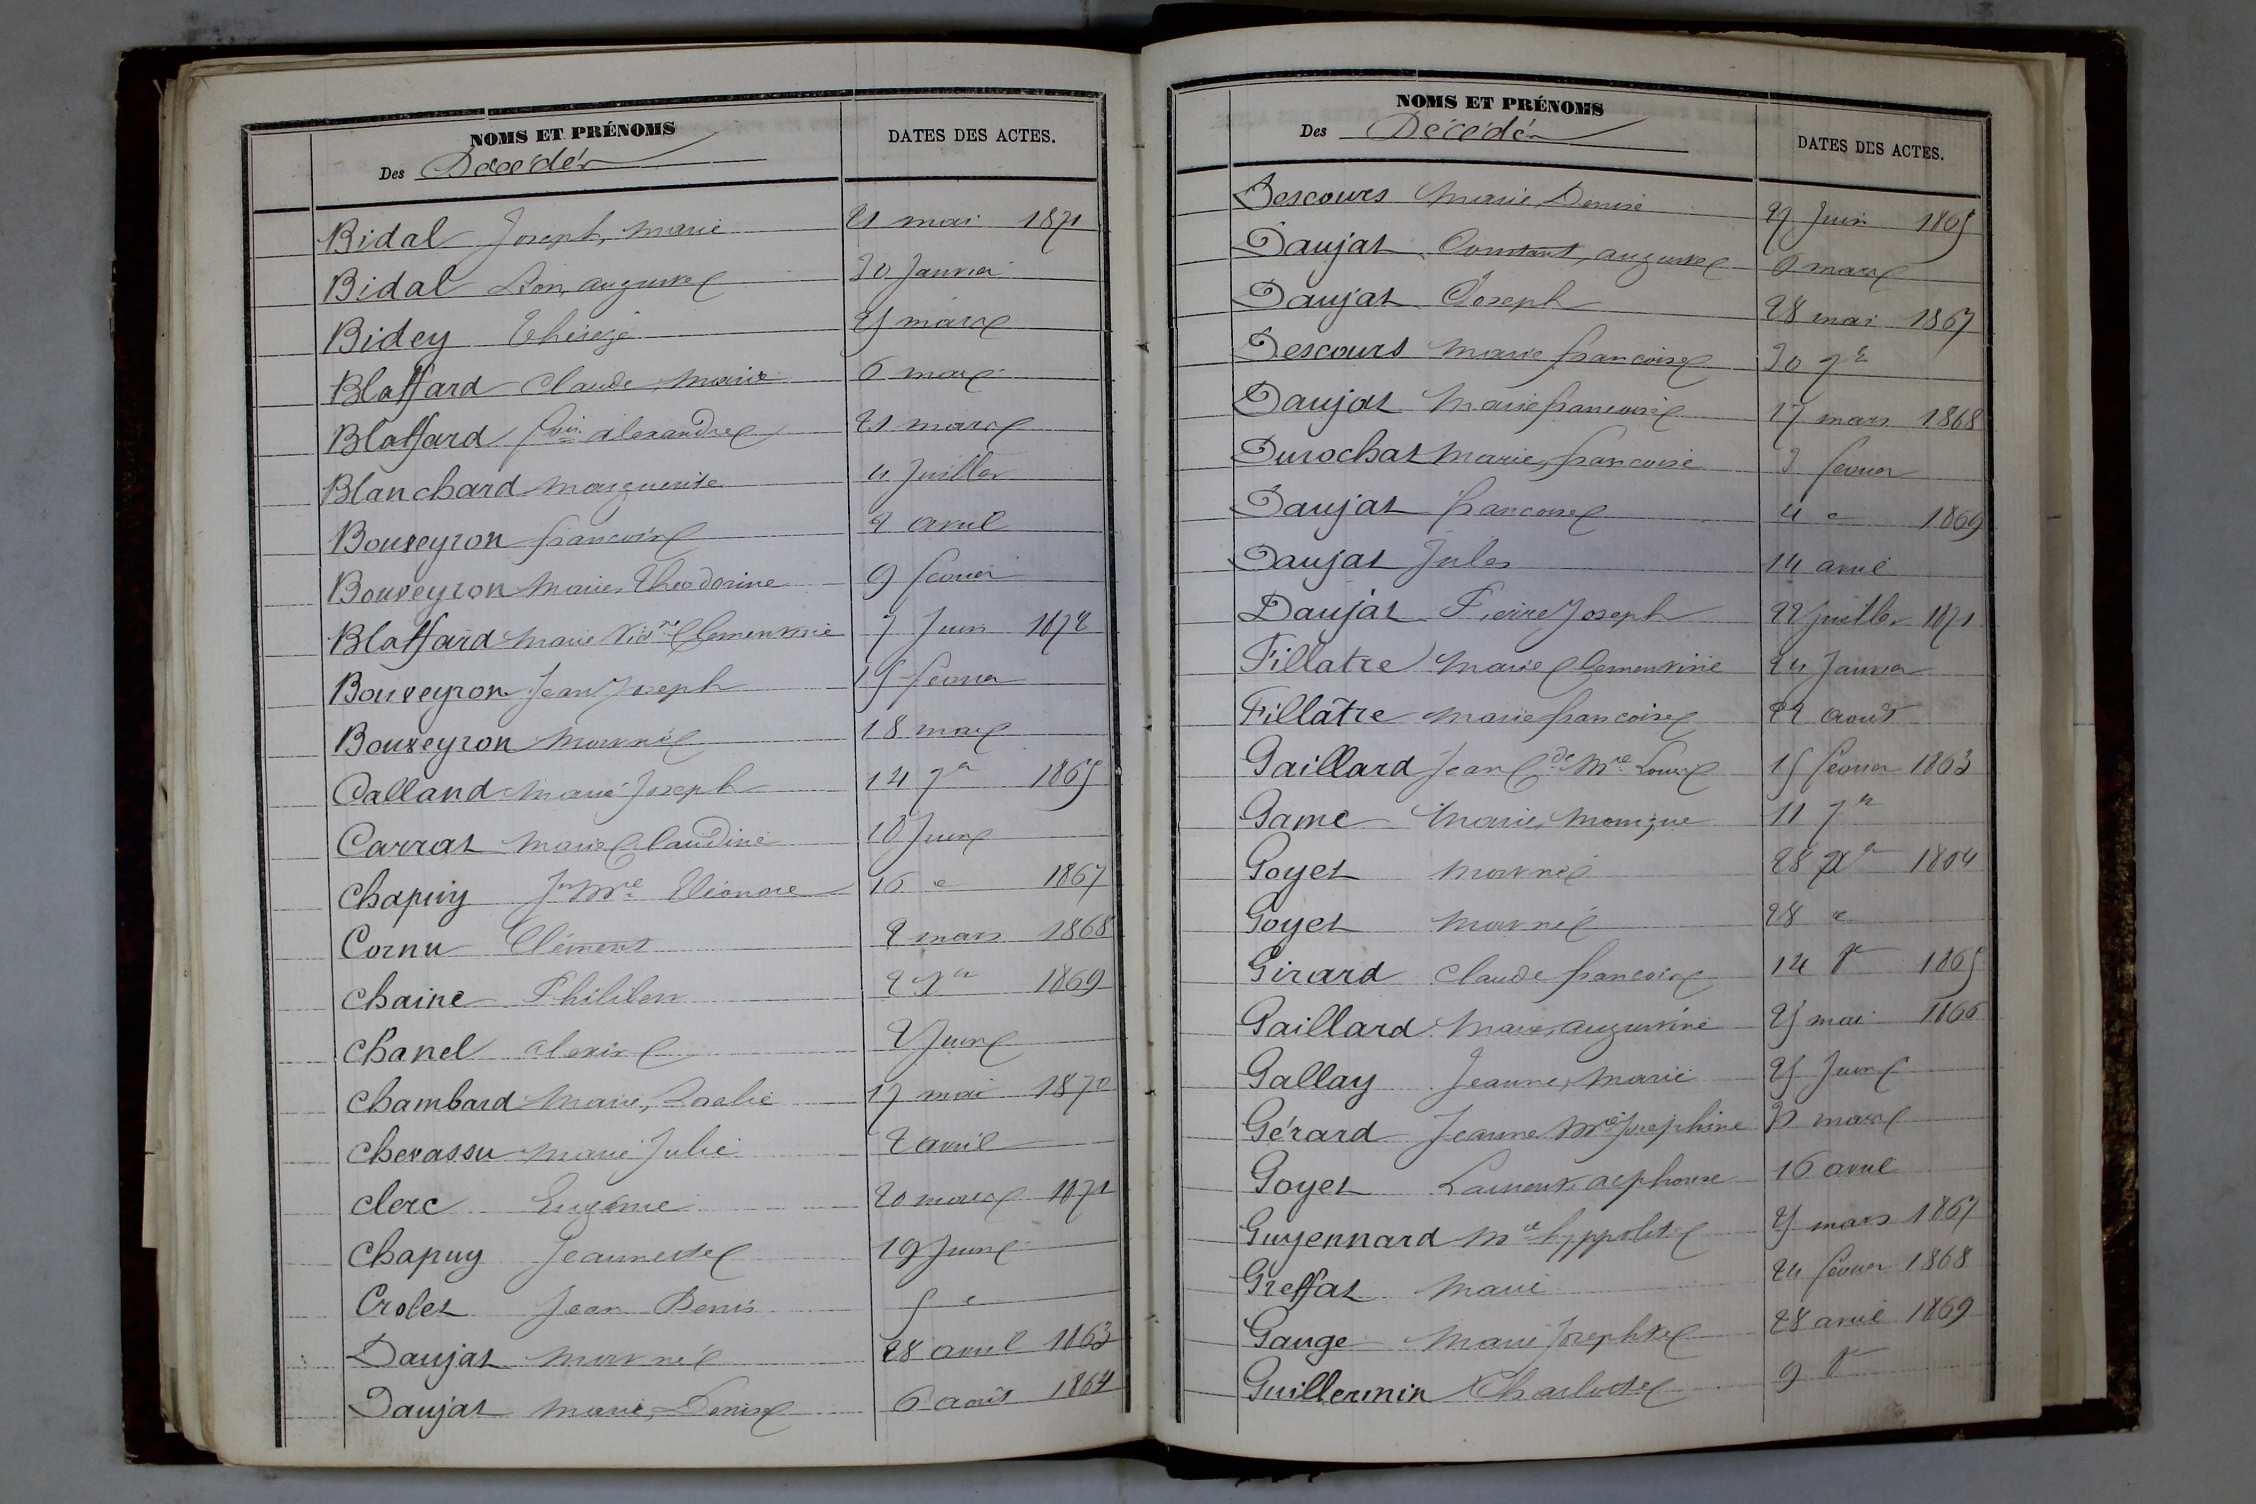 NOMS ET PRÉNOMS
Des Décédés
DATES DES ACTES.
Bidal Joseph, Marie 21 mai 1871
Bidal Léon, auguste 30 Janvier
Bidey Thérèze 25 mars
Blaffard Claude, Marie 6 mars
Blaffard alexandre 21 mars
Blanchard Marguerite 4 Juillet
Bouveyron françoise 2 avril
Bouveyron Marie, Théodorine 9 février
Blaffard Marie Vict.ne Clementine 7 Juin 1872
Bouveyron Jean Joseph 15 février
Bouveyron Mort né 18 mars
Calland Marie Joseph 14 7re 1865
Carrat Marie Claudine 10 Juin
Chapuy Jn Mie Eléonore 16 " 1867
Cornu Clément 2 mars 1868
Chaine Philibert 2 Xre 1869
Chanel alexis 2 Juin
Chambard Marie, 17 mai 1870
Chevassu Marie Julie 2 avril
Clerc Eugénie 20 mars 1871
Chapuy Jeannette 19 Juin
Crolet Jean Denis 5 "
Daujat Mort né 28 avril 1863
Daujat Marie, Denise 6 août 1864
NOMS ET PRÉNOMS
Des Décédés
DATES DES ACTES.
Descours Marie Denise 27 Juin 1865
Daujat Constant, auguste 6 mars
Daujat Joseph 28 mai 1867
Descours Marie françoise 30 7re
Daujat Marie françoise 17 mars 1868
Durochat Marie, françoise 3 février
Daujat françoise 4 " 1869
Daujat Jules 14 avril
Daujat Pierre Joseph 22 Juillet 1871
Fillatre Marie Clementine 24 Janvier
Fillâtre Marie françoise 22 août
Gaillard Jean Cde Mie Louis 15 février 1863
Game Marie, Monique 11 7re
Goyet Mort né 28 Xre 1864
Goyet Mort né 28 "
Girard Claude françois 14 8re 1865
Gaillard Marie, augustine 25 mai 1866
Gallay Jeanne, Marie 25 Juin
Gérard Jeanne Mie Joséphine mars
Goyet Laurent alphonse 16 avril
Guyennard Mie hyppolite 25 mars 1867
Greffat Marie 24 février 1868
Gauge Marie Josephte 28 avril 1869
Guillermin Charlotte 9 8re